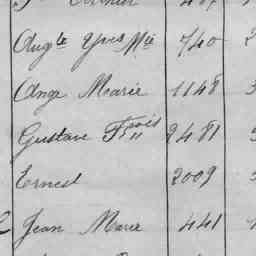 Augte Yves Mie 740
Ange Marie 1148
Gustave Fçois 2481
Ernest 2009
Jean Marie 441